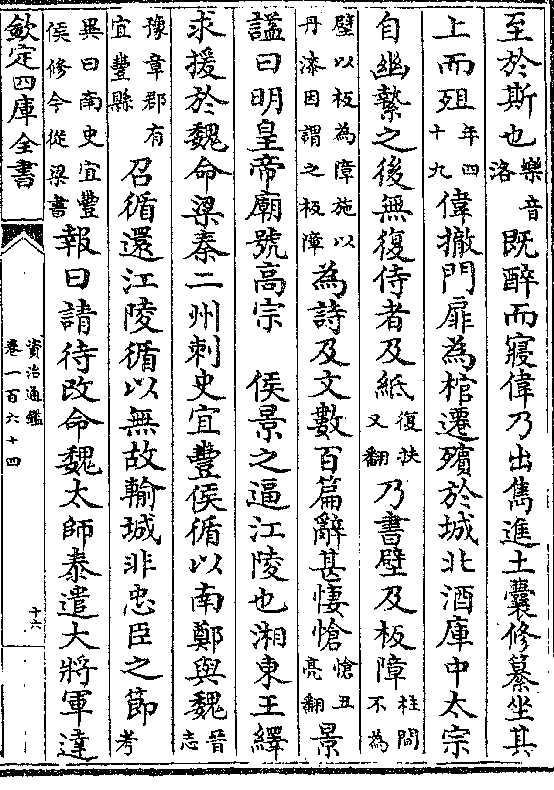 至於斯也樂音洛既醉而寢偉乃出雋進土囊修纂坐其
上而殂年四十九偉撤門扉為棺遷殯於城北酒庫中太宗
自幽縶之後無復侍者及紙復扶又翻乃書壁及板障柱間不為
壁以板為障施以丹漆因謂之板障為詩及文數百篇辭甚悽愴愴丑亮翻景
諡曰明皇帝廟號高宗　侯景之逼江陵也湘東王繹
求援於魏命梁秦二州刺史宜豐侯循以南鄭與魏晉志
豫章郡有宜豐縣召循還江陵循以無故輸城非忠臣之節考
異曰南史宜豐侯修今從梁書報曰請待改命魏太師泰遣大將軍達
欽定四庫全書
資治通鑑
卷一百六十四
十六